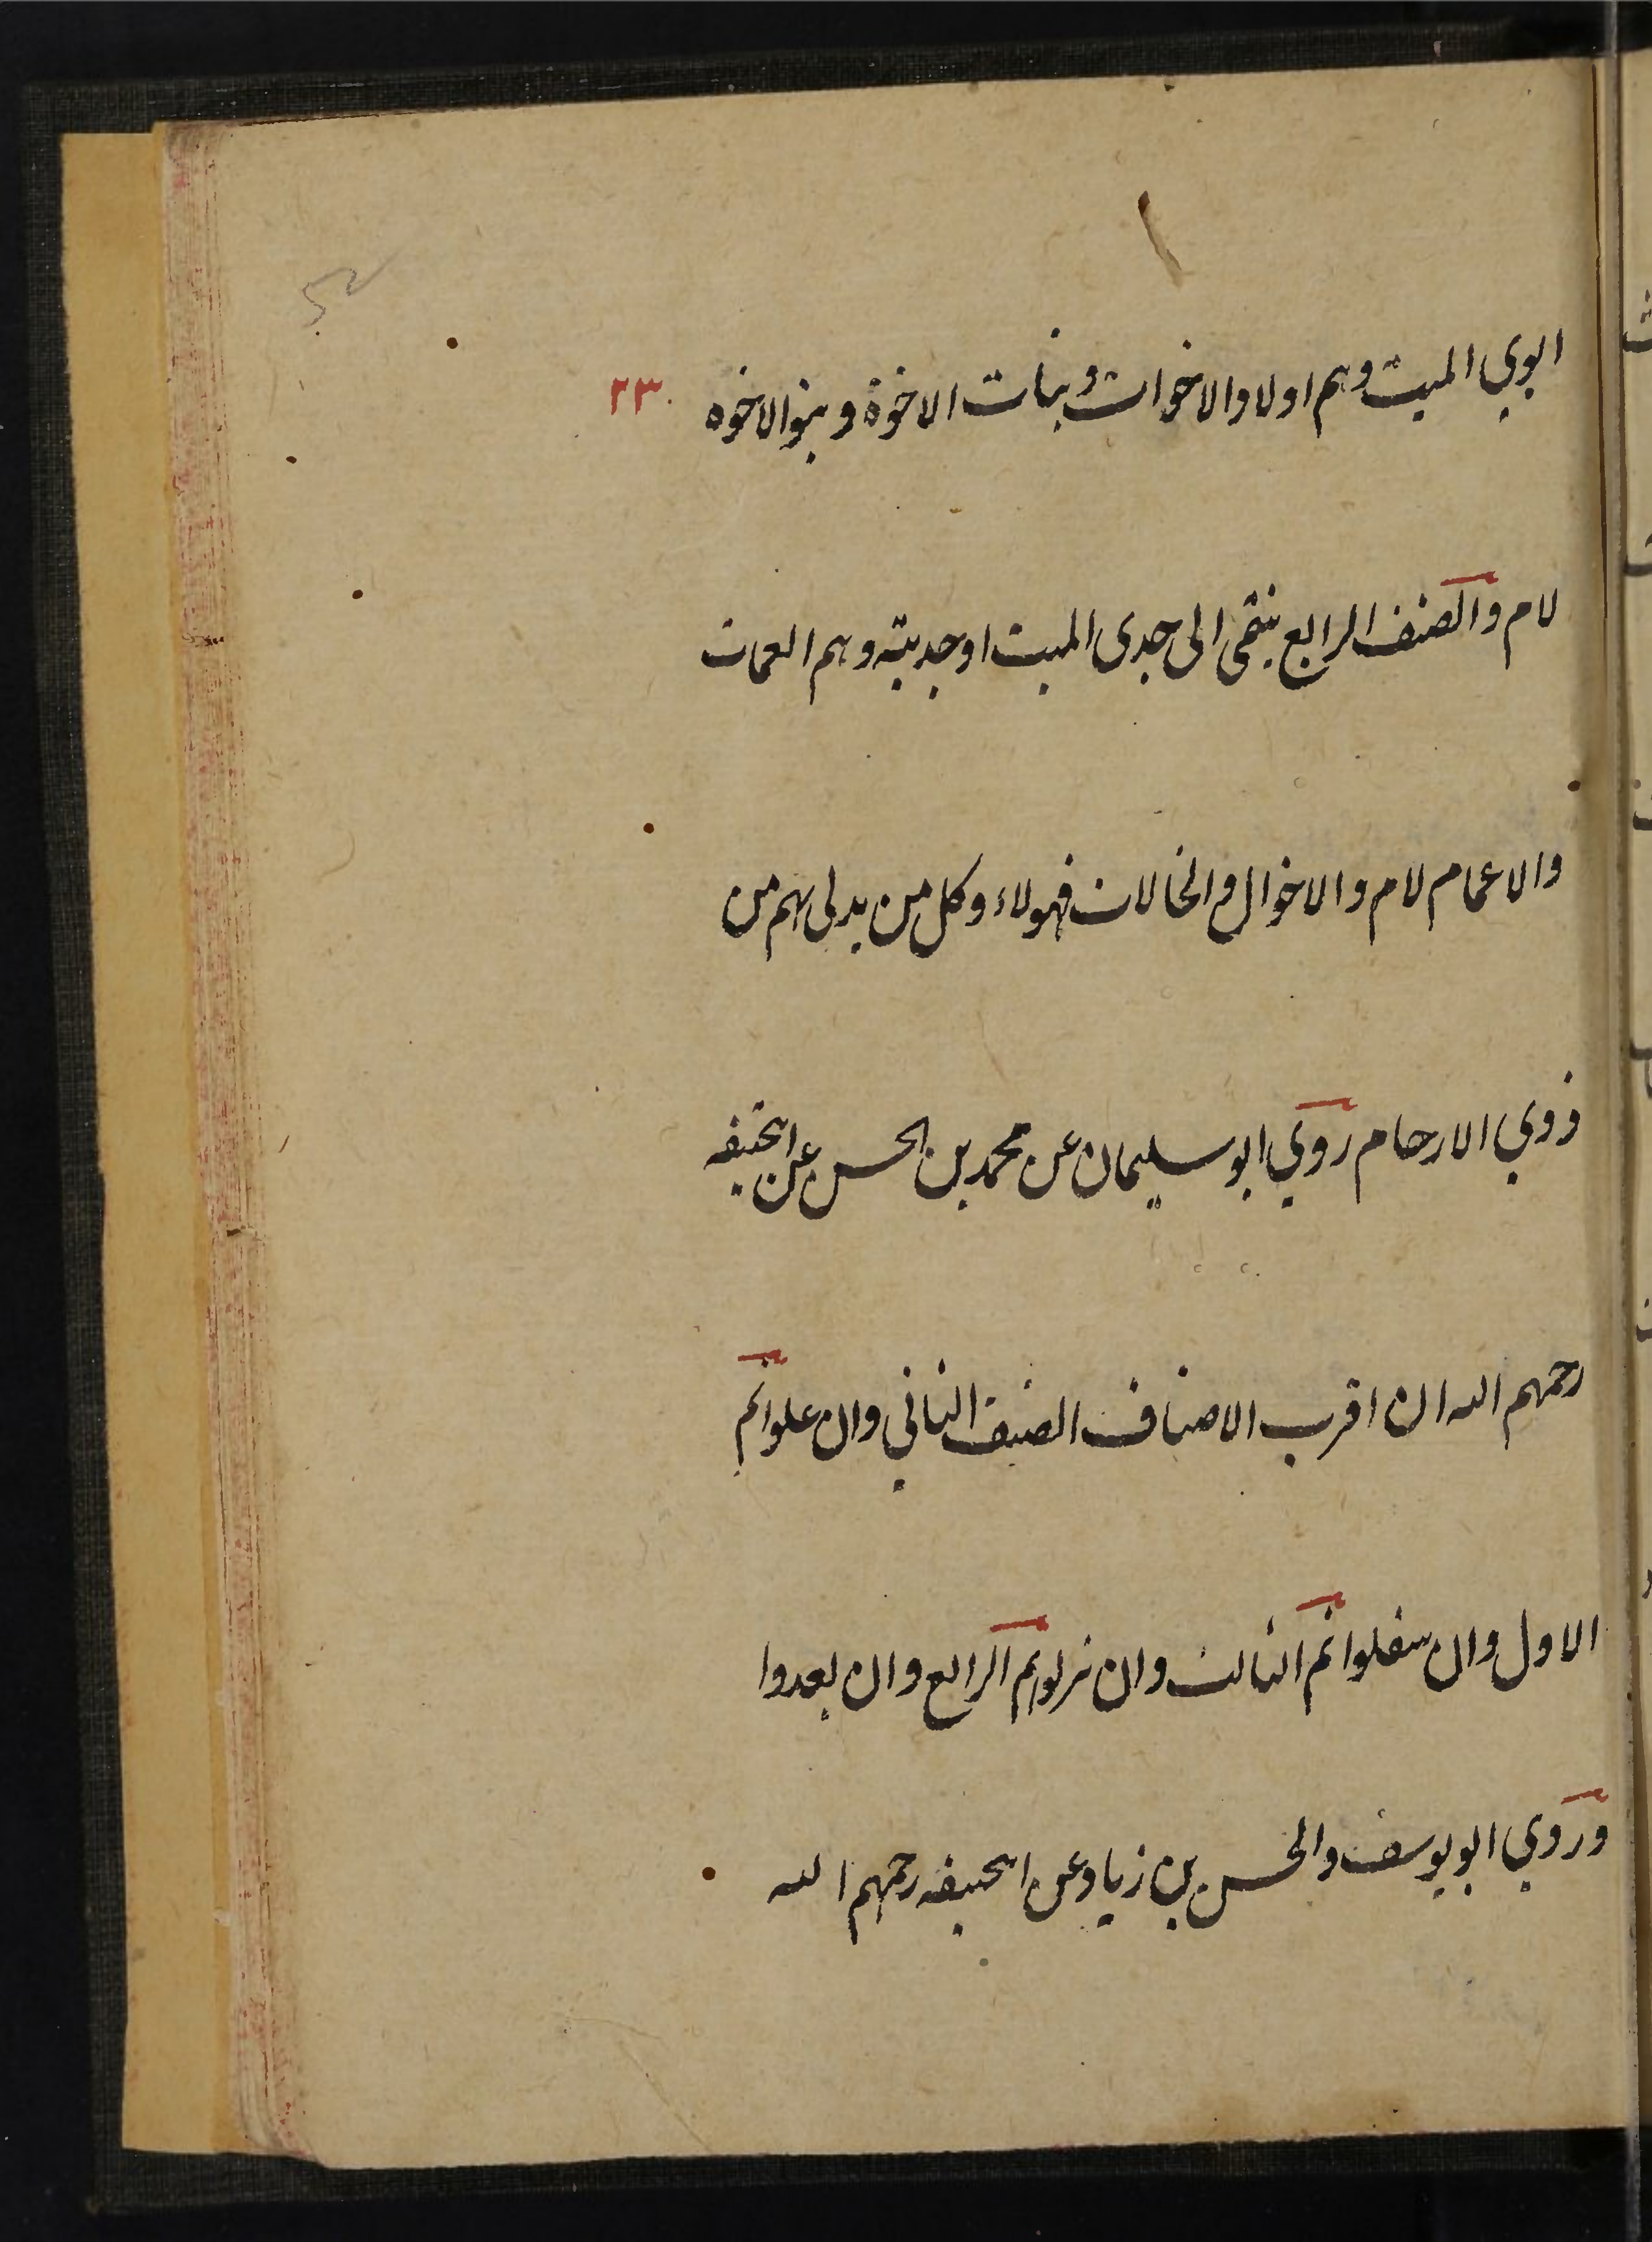 ابوي الميت وهم اولاد الاخوات وبنات الاخوة وبنو الاخوه
٢٣
لام والصنف الرابع ينتمى الى جدى الميت او جديته وهم العمات
والاعمام لام والاخوال والخالات فهولاء وكل من يدلى بهم من
ذوي الارحام روي ابو سليمان عن محمد بن الحسن عن ابيحنيفه
رحمهم الله ان اقرب الاصناف الصنف الثاني وان علوا ثم
الاول وان سفلوا ثم الثالث وان نزلوا ثم الرابع وان بعدوا
وروي ابو يوسف والحسن بن زياد عن ابيحنيفه رحمهم الله